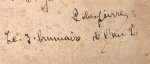 Robespierre
Le 3. brumaire de l'an 2.